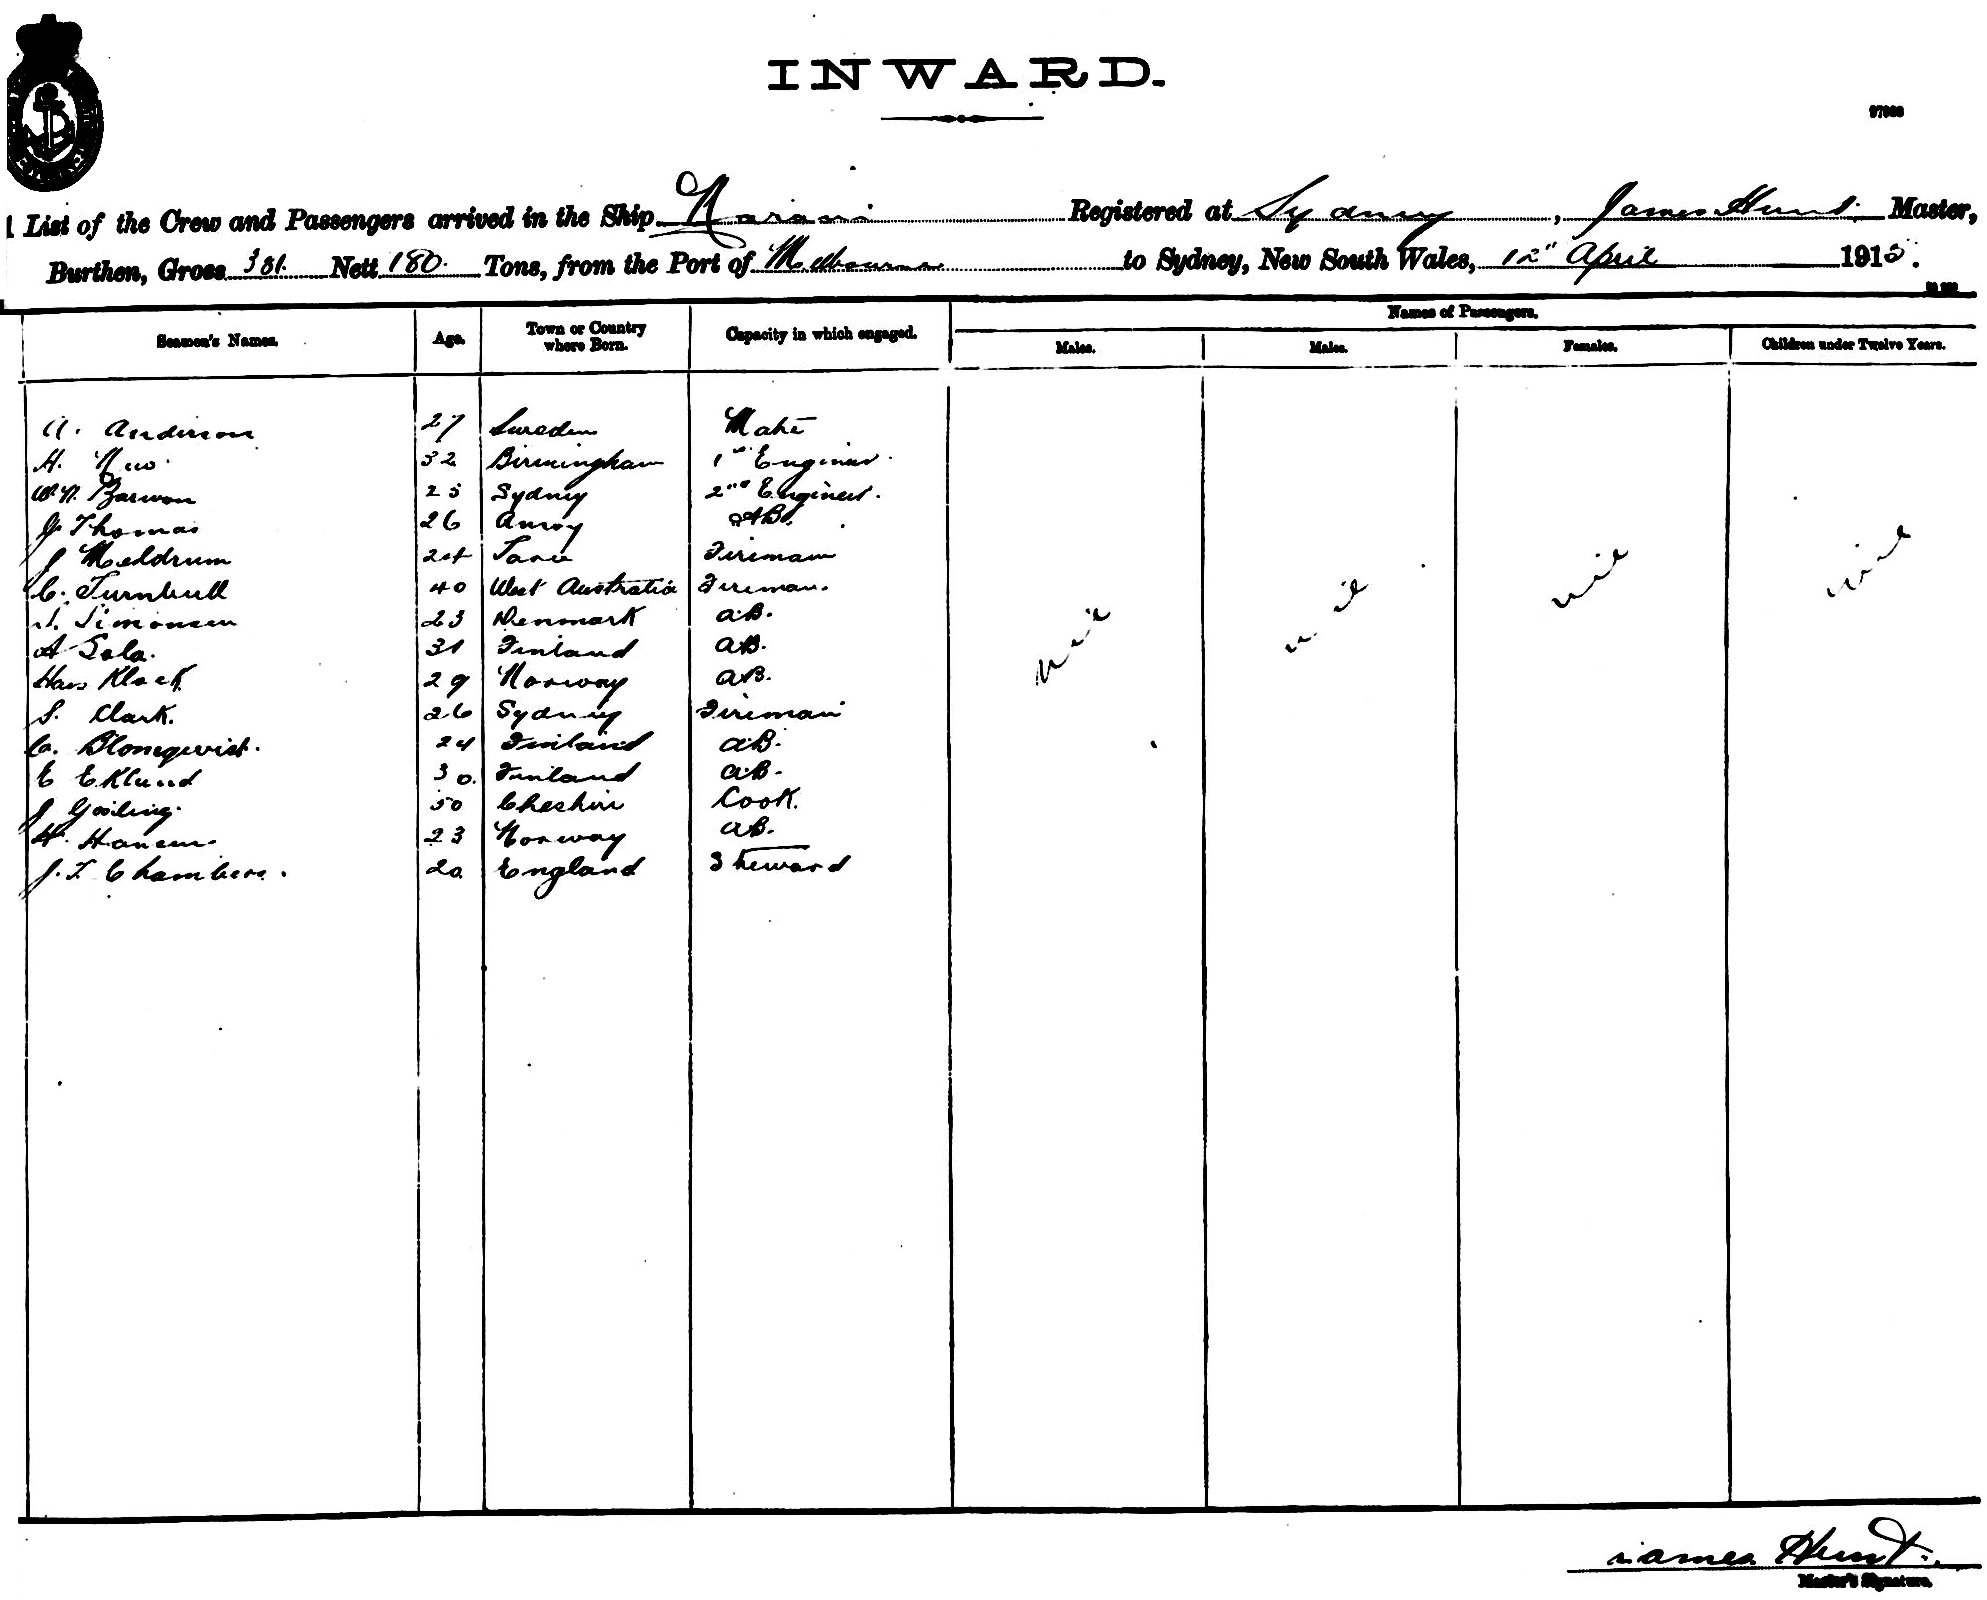 INWARD.
List of the Crew and Passengers arrived in the Ship Narani Registered at Sydney, James Hunt, Master,
Burthen, Gross 381. Nett 180. Tons, from the Port of Melbourne to Sydney, New South Wales, 12" April 191
Names of Passengers.
Seamen's Names. Age. Town or Country where Born. Capacity in which engaged. Males. Males. Females. Children under Twelve Years.
A. Anderson 27 Sweden Mate
H. New 32 Birmingham 1st Engineer.
W.N. Barwon 25 Sydney 2nd Engineer.
J Thomas 26 AB.
J Meldrum 24 Fireman
C. Turnbull 40 West Australia Fireman.
S. Simonsen 23 Denmark AB.
A 31 Finland AB.
Hans Klock 29 Norway AB.
S. Clark. 26 Sydney Fireman
Blomqvist. 24 Finland AB.
E Eklund 30. Finland AB.
J Gosling. 50 Cheshire Cook.
H. Hansen 23 Norway AB.
J. T. Chambers. 20 England Steward
nil nil nil nil
James Hunt.
Master's Signature.